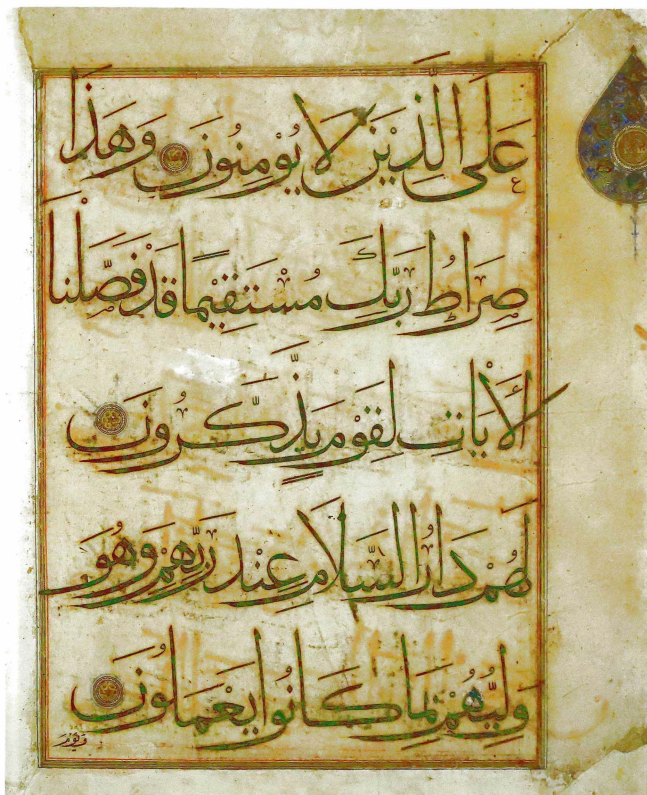 عَلَى الَّذِيْنَ لَا يُوْمِنُوْنَ وَهَذَا
صِرَاطُ رَبِّكَ مُسْتَقِيْمًا قَدْ فَصَّلْنَا
الْاَيَاتِ لِقَوْمٍ يَذَّكَّرُوْنَ
لَهُمْ دَارُ السَّلَامِ عِنْدَ رَبِّهِمْ وَهُوَ
وَلِيُّهُمْ بِمَا كَانُوا يَعْمَلُوْنَ
وَيَوْمَ